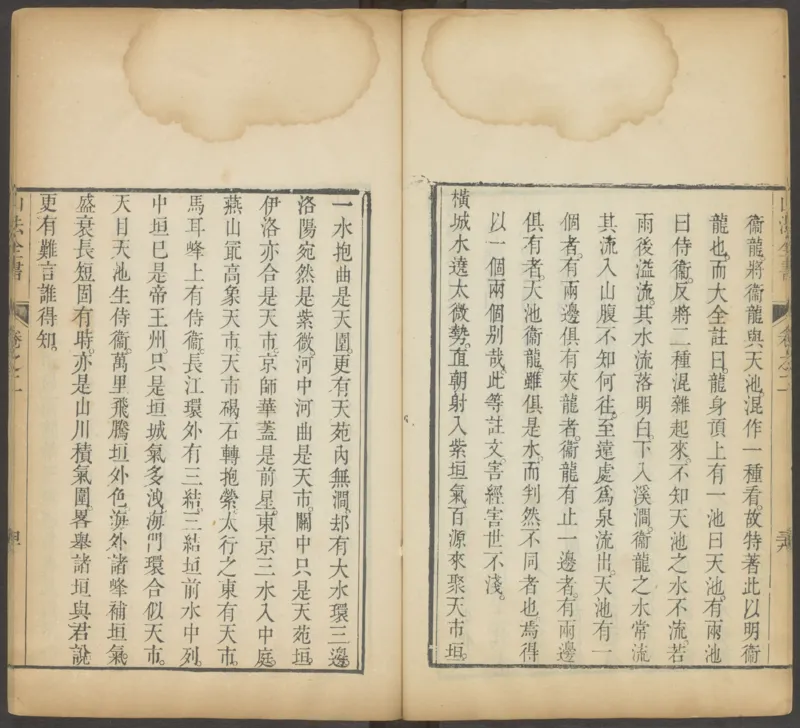 衞龍將衞龍與天池混作一種看。故特著此以明衞
龍也。而大全註曰。龍身頂上有一池曰天池。有兩池
曰侍衞。反將二種混雜起來。不知天池之水不流。若
雨後溢流。其水流落明白。下入溪澗。衞龍之水常流
其流入山腹。不知何往。至遠處爲泉流出。天池有一
個者。有兩邊俱有夾龍者。衞龍有止一邊者。有兩邊
俱有者。天池衞龍。雖俱是水。而判然不同者也。焉得
以一個兩個别哉。此等註文。害經害世不淺。
橫城水遶太微勢。直朝射入紫垣氣。百源來聚天市垣。
一水抱曲是天園。更有天苑內無澗。却有大水環三邊。
洛陽宛然是紫微。河中河曲是天市。關中只是天苑垣。
伊洛亦合是天市。京師華蓋是前星。東京三水入中庭。
燕山冣高象天市。天市碣石轉抱縈。太行之東有天市。
馬耳峰上有侍衞。長江環外有三結。三結垣前水中列。
中垣巳是帝王州。只是垣城氣多洩。海門環合似天市。
天目天池生侍衞。萬里飛騰垣外色。海外諸峰補垣氣。
盛衰長短固有時。亦是山川積氣圍。畧舉諸垣與君說。
更有難言誰得知。